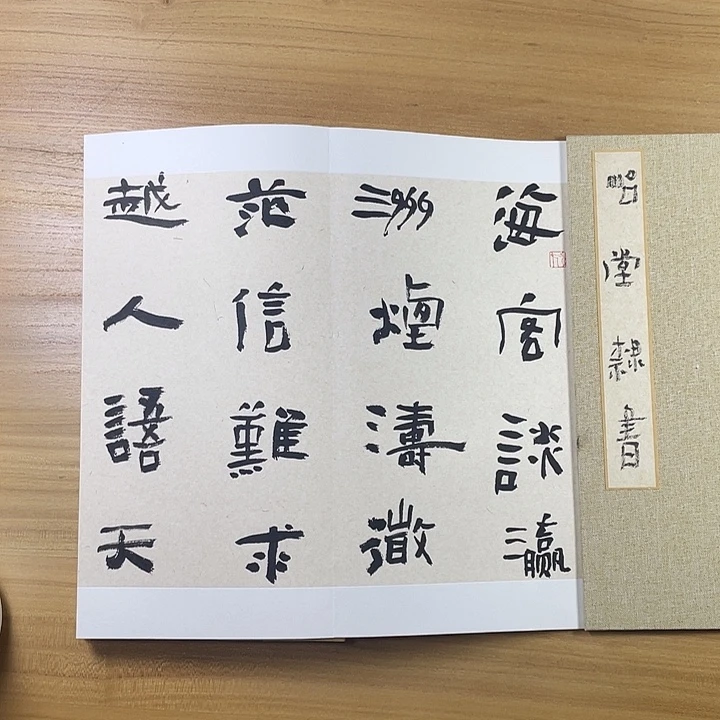 堂隸書
海客談瀛
洲煙濤微
茫信難求
越人語天